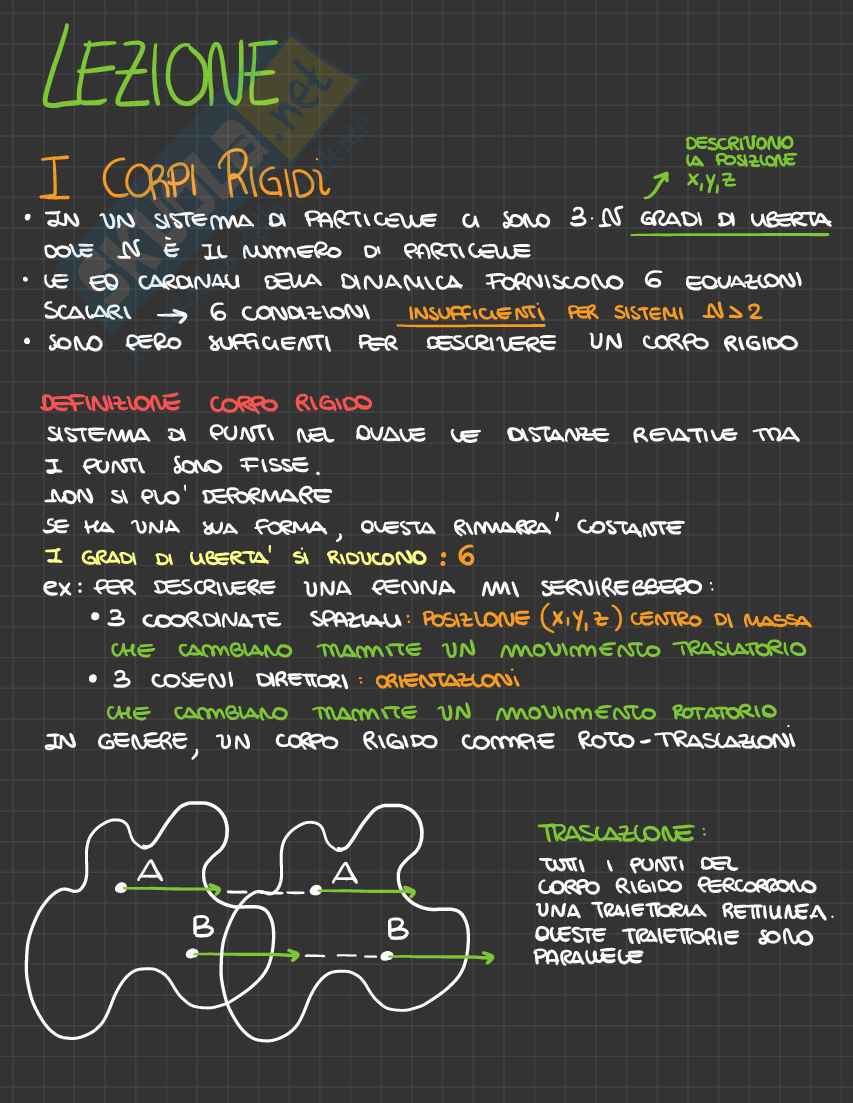 LEZIONE
I CORPI RIGIDI
DESCRIVONO
LA POSIZIONE
X,Y,Z
• IN UN SISTEMA DI PARTICELLE CI SONO 3·N GRADI DI LIBERTA
DOVE N È IL NUMERO DI PARTICELLE
• LE EQ CARDINALI DELLA DINAMICA FORNISCONO 6 EQUAZIONI
SCALARI → 6 CONDIZIONI INSUFFICIENTI PER SISTEMI N>2
• SONO PERO SUFFICIENTI PER DESCRIVERE UN CORPO RIGIDO
DEFINIZIONE CORPO RIGIDO
SISTEMA DI PUNTI NEL QUALE LE DISTANZE RELATIVE TRA
I PUNTI SONO FISSE.
NON SI PUO' DEFORMARE
SE HA UNA SUA FORMA, QUESTA RIMARRA' COSTANTE
I GRADI DI LIBERTA' SI RIDUCONO: 6
ex: PER DESCRIVERE UNA PENNA MI SERVIREBBERO:
• 3 COORDINATE SPAZIALI: POSIZIONE (X,Y,Z) CENTRO DI MASSA
CHE CAMBIANO TRAMITE UN MOVIMENTO TRASLATORIO
• 3 COSENI DIRETTORI: ORIENTAZIONI
CHE CAMBIANO TRAMITE UN MOVIMENTO ROTATORIO
IN GENERE, UN CORPO RIGIDO COMPIE ROTO-TRASLAZIONI
A
A
B
B
TRASLAZIONE:
TUTTI I PUNTI DEL
CORPO RIGIDO PERCORRONO
UNA TRAIETTORIA RETTILINEA.
QUESTE TRAIETTORIE SONO
PARALLELE
SKUOLA.net